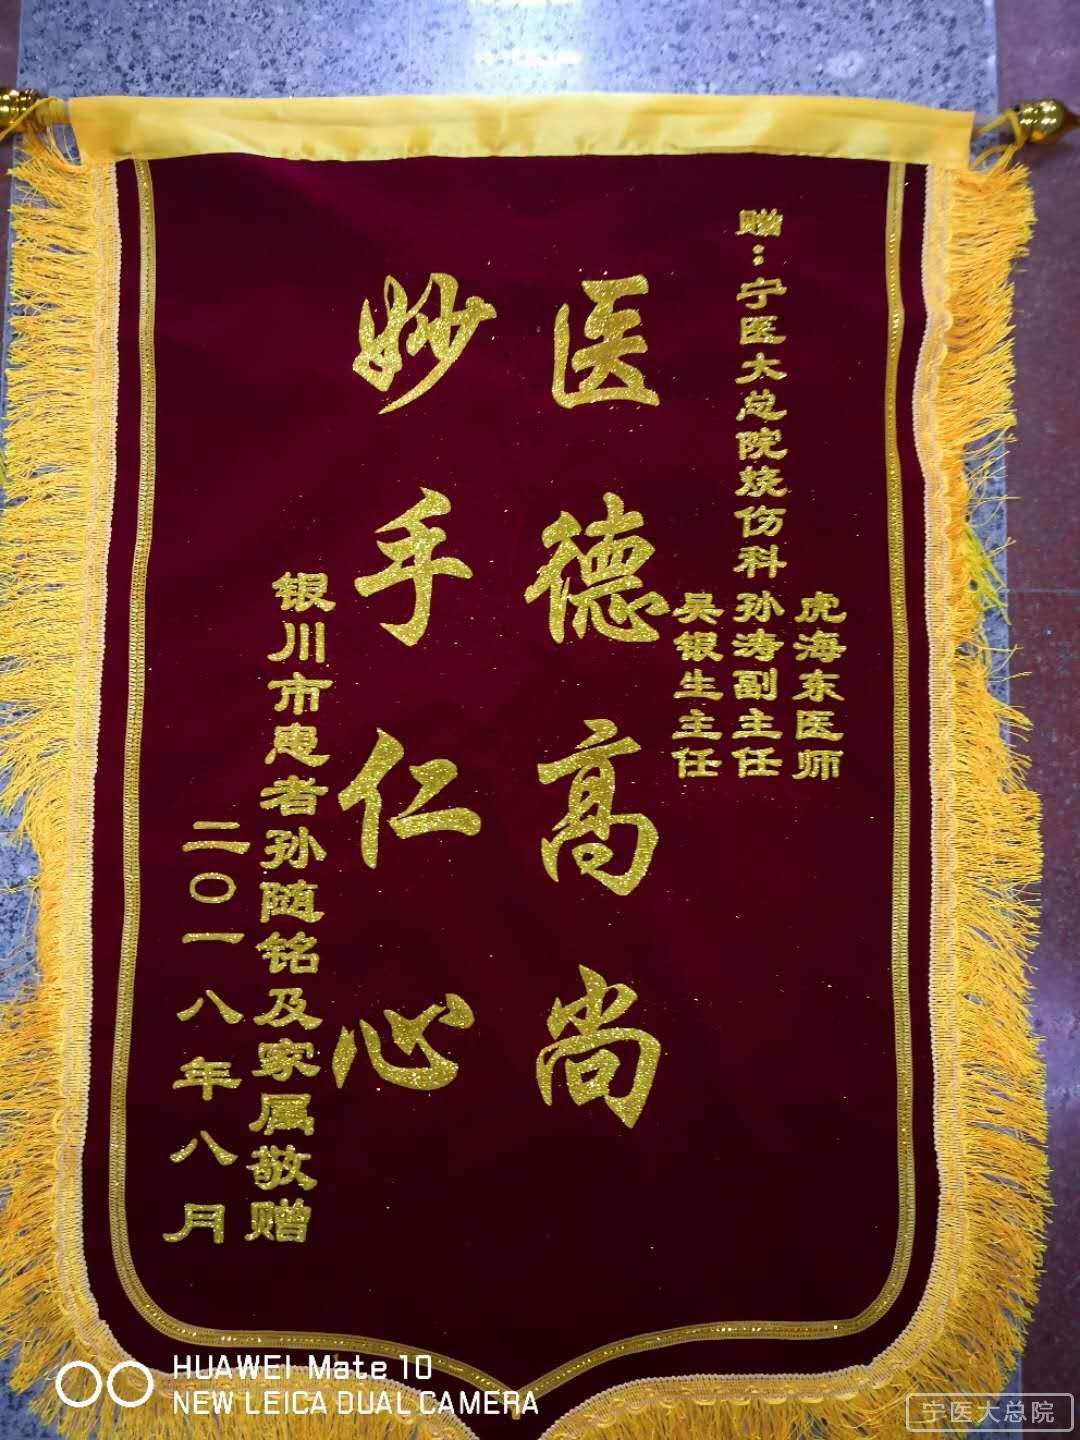 赠：宁医大总院烧伤科
虎海东医师
孙涛副主任
吴银生主任
医德高尚
妙手仁心
银川市患者孙随铭及家属敬赠
二〇一八年八月
HUAWEI Mate 10
NEW LEICA DUAL CAMERA
宁医大总院